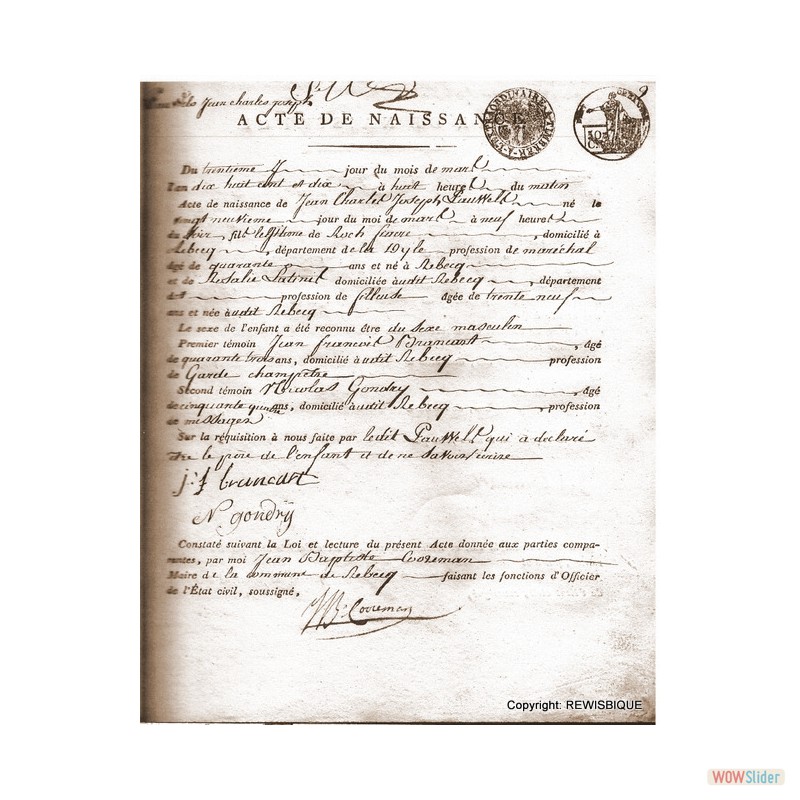 Jean charles joseph
ACTE DE NAISSANCE
9
Du trentieme jour du mois de mars
l'an dix huit cent et dix à huit heures du matin
Acte de naissance de Jean Charles Joseph Pauwels né le
vingt neuvieme jour du moi de mars à neuf heures
du soir, fils légitime de Roch domicilié à
Rebecq, département de la Dyle profession de maréchal
âgé de quarante ans et né à Rebecq
et de Rosalie domiciliée audit Rebecq, département
profession de fileuse âgée de trente neuf
ans et née audit Rebecq
Le sexe de l'enfant a été reconnu être du sexe masculin
Premier témoin Jean francois Brancart, âgé
de quarante trois ans, domicilié audit Rebecq profession
de Garde champetre
Second témoin Nicolas Gondry, âgé
de cinquante ans, domicilié audit Rebecq, profession
de messager
Sur la réquisition à nous faite par ledit Pauwels qui a declaré
etre le pere de l'enfant et de ne savoir ecrire
j. f brancart
N. gondrÿ
Constaté suivant la Loi et lecture du présent Acte donnée aux parties compa-
rantes, par moi Jean Baptiste Cooreman
Maire de la commune de Rebecq faisant les fonctions d'Officier
de l'État civil, soussigné,
JB. Cooreman
Copyright: REWISBIQUE
WOWSlider